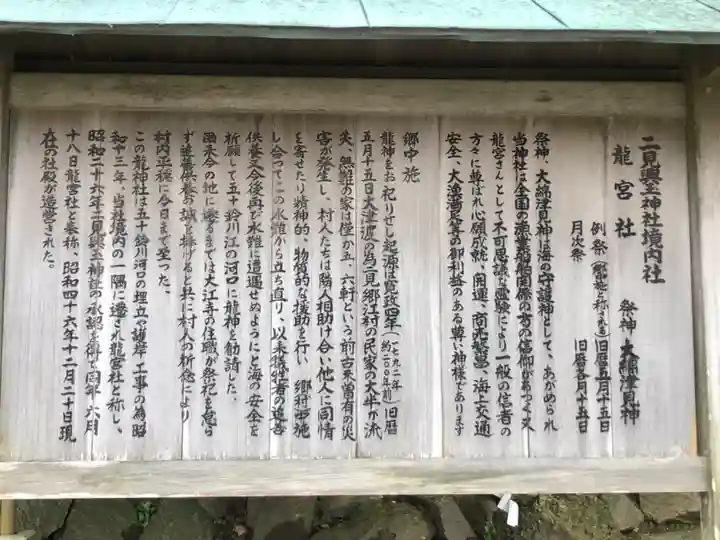 二見興玉神社境内社
龍宮社
祭神・大綿津見神
例祭(郷施と称される)旧暦五月十五日
月次祭 旧暦各月十五日
祭神・大綿津見神は海の守護神として、あがめられ
当神社は全国の漁業船舶関係の方の信仰があつく又
龍宮さんとして不可思議な霊験により一般の信者の
方々に尊ばれ心願成就、開運、商売繁昌、海上交通
安全、大漁満足等の御利益のある尊い神様であります
郷中施
龍神をお祀りせし起源は寛政四年(一七九二年 約二〇〇年前)旧暦
五月十五日大津波の為二見郷江村の民家の大半が流
失、無難の家は僅か五、六軒という前古未曽有の災
害が発生し、村人たちは隣人相助け合い他人に同情
を寄せたり精神的、物質的な援助を行い 郷中施
し合ってこの水難から立ち直り、以来犠牲者の追善
供養又今後再び水難に遭遇せぬようにと海の安全を
祈願して五十鈴川江の河口に龍神を勧請した。
爾来今の地に遷るまでは大江寺の住職が祭祀を怠ら
ず追善供養の誠を捧げると共に村人の祈念により
村内平穏に今日まで至った。
この龍神社は五十鈴川河口の埋立や護岸工事の為昭
和十三年、当社境内の一隅に遷され龍宮社と称し、
昭和二十六年二見興玉神社の承認を得て同年六月
十八日龍宮社と奉称、昭和四十六年十二月二十日現
在の社殿が造営された。